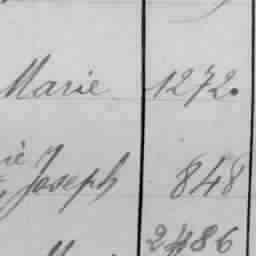 Marie 1272.
Joseph 848
2486